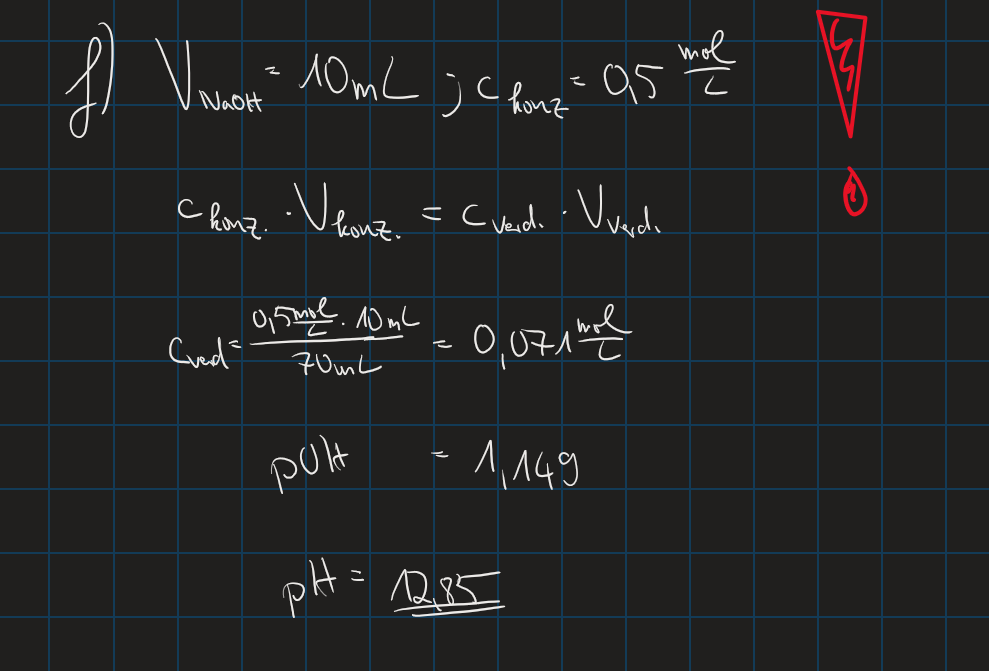 f) V_NaOH = 10mL ; c_konz = 0,5 mol/L
c_konz. · V_konz. = c_verd. · V_verd.
c_verd = (0,5 mol/L · 10mL)/(70mL) = 0,071 mol/L
pOH = 1,149
pH = 12,85